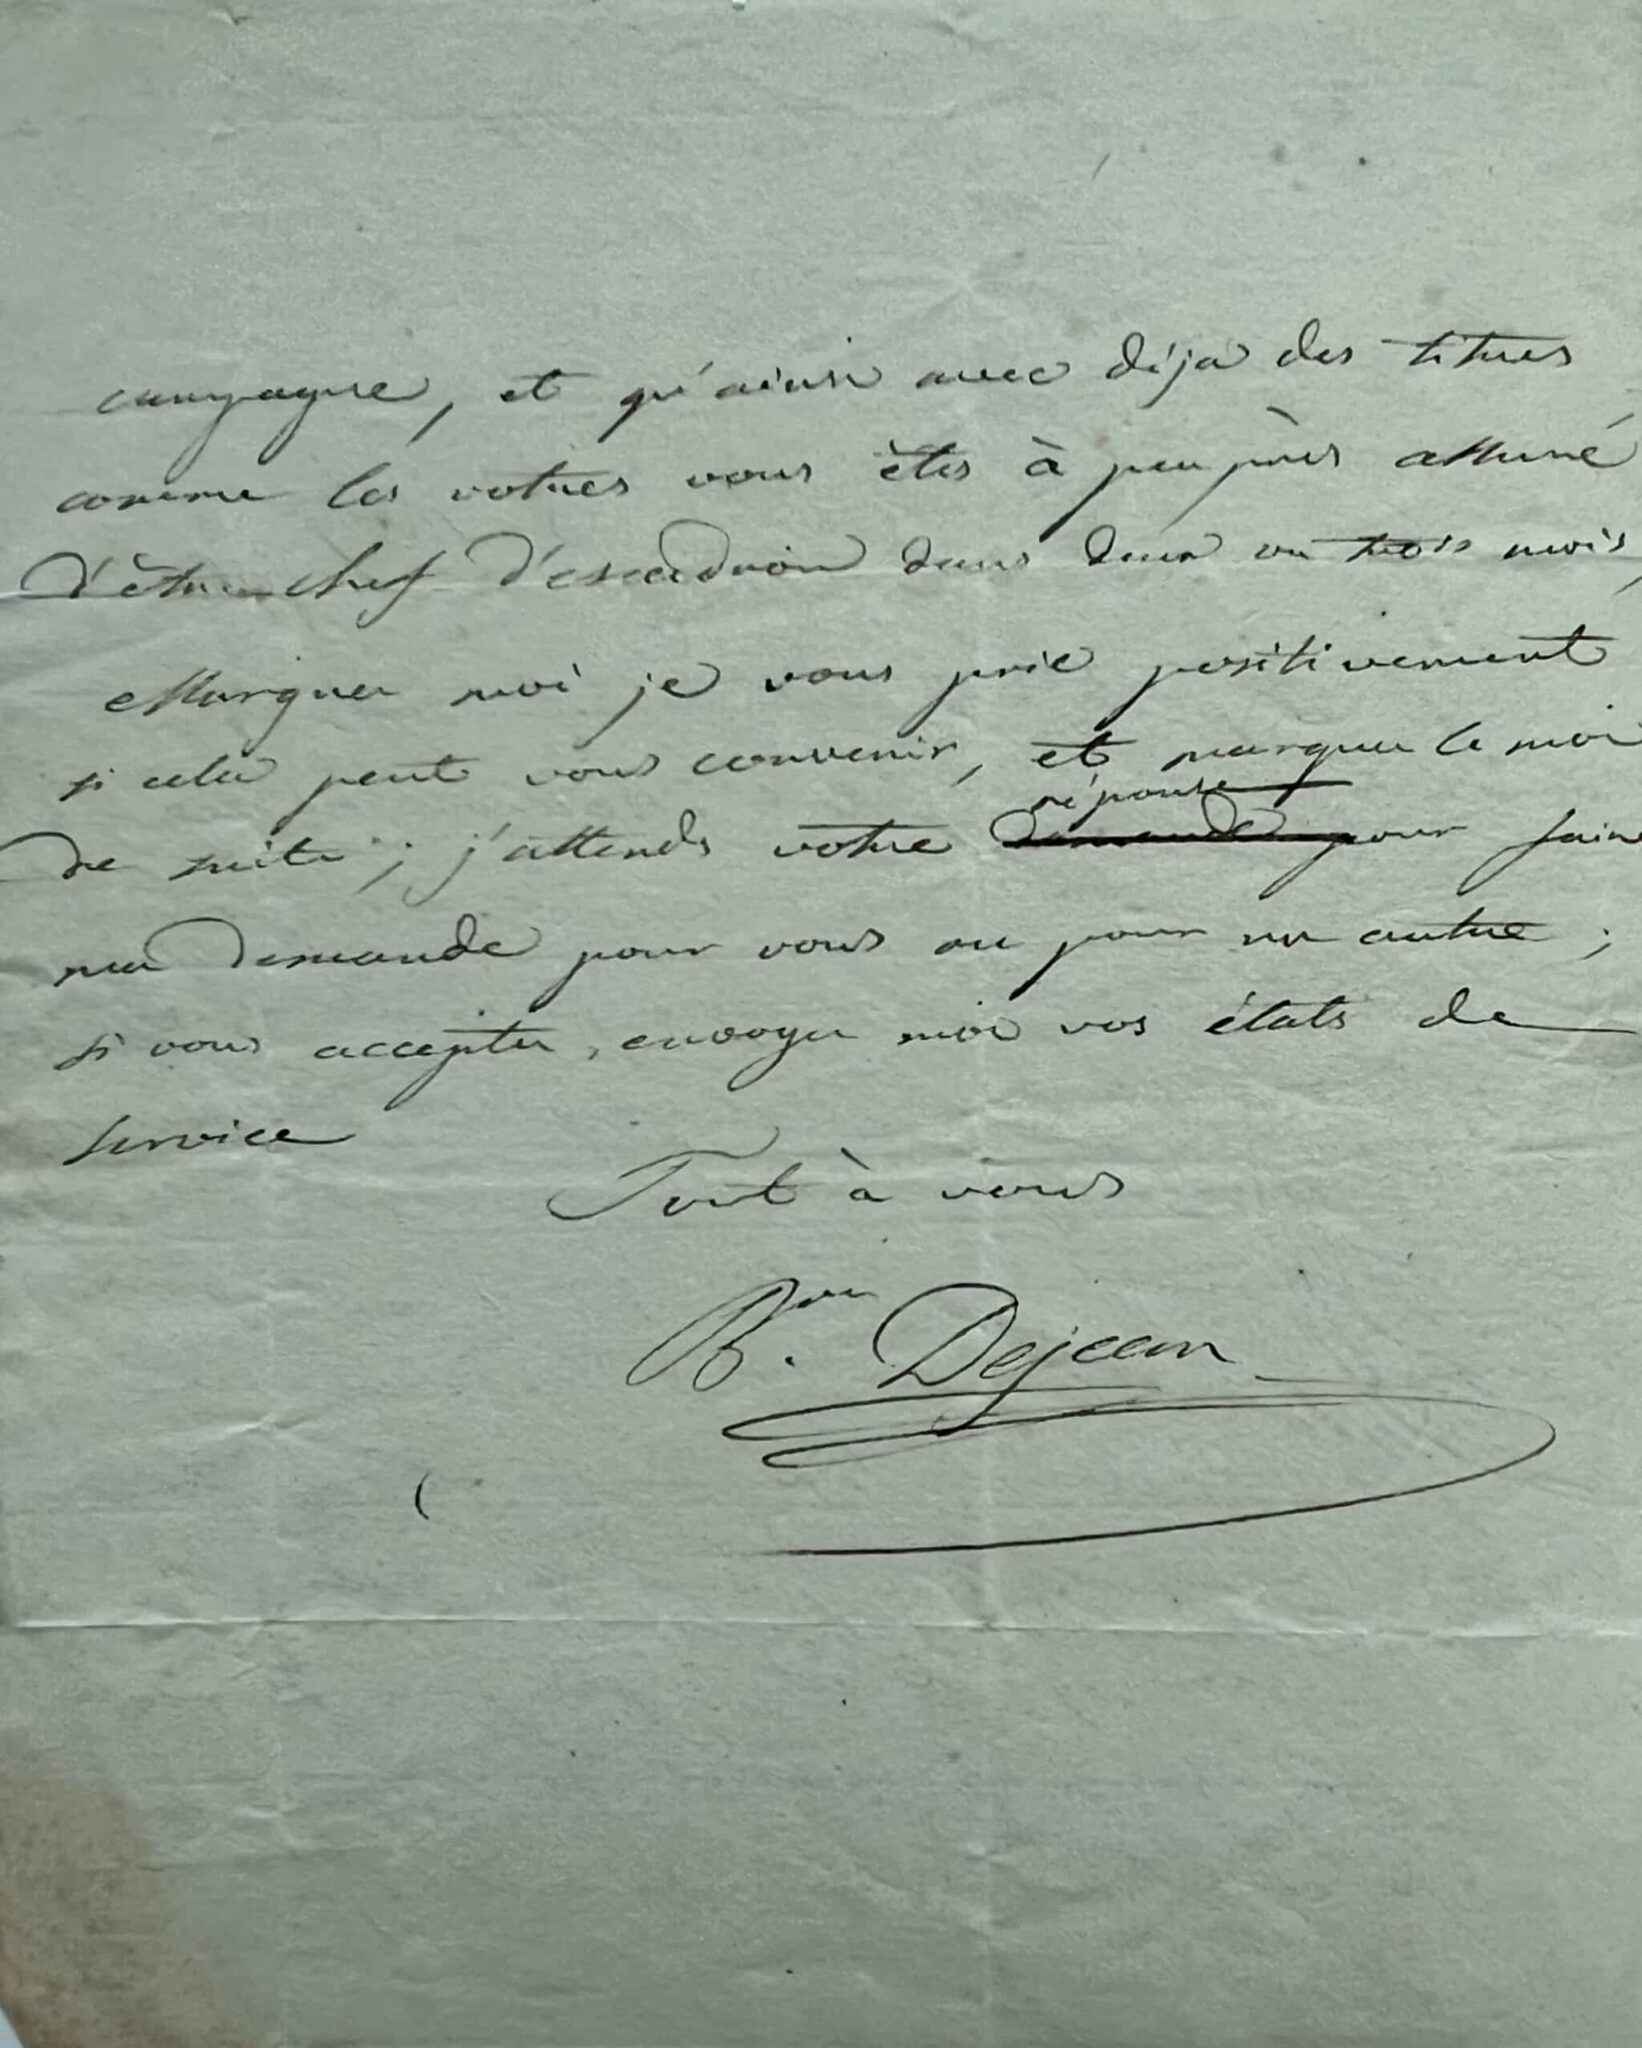 campagne, et qu'ainsi avec déjà des titres
comme les votres vous êtes à peu près assuré
d'être chef d'escadron dans deux ou trois mois,
Marquez moi je vous prie positivement
si cela peut vous convenir, et marquez le moi
de suite ; j'attends votre demande réponse pour faire
ma demande pour vous ou pour un autre ;
si vous acceptez, envoyez moi vos états de
service
Tout à vous
Bon. Dejean